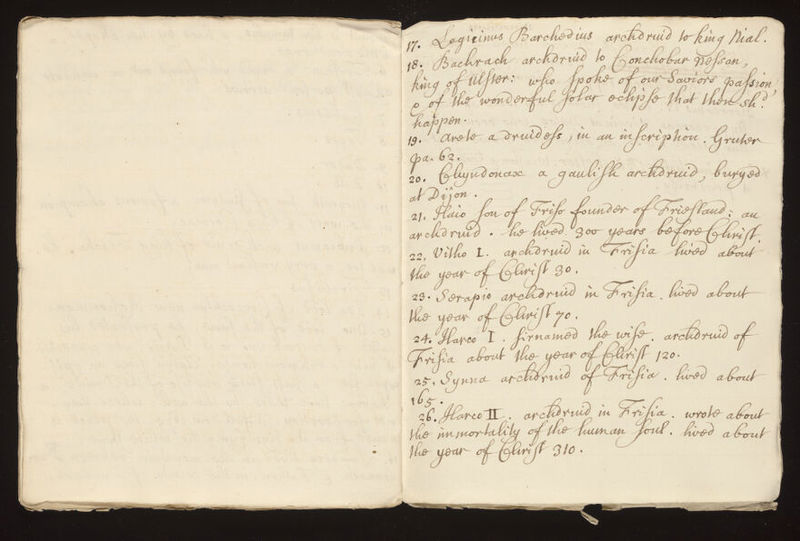 17. Legirinus Barchedius archdruid to king Nial.
18. Bachrach archdruid to Conchobar Nessan,
king of Ulster: who spoke of our Saviors passion,
& of the wonderful solar eclipse that then sh.d
happen.
19. Arete a druidess, in an inscription. Gruter
pa. 62.
20. Chyndonax a gaulish archdruid, buryed
at Dijon.
21. Haio son of Friso founder of Friesland: an
archdruid. he lived 300 years before Christ.
22. Vitho I. archdruid in Frisia lived about
the year of Christ 30.
23. Serapio archdruid in Frisia. lived about
the year of Christ 70.
24. Harco I. sirnamed the wise. archdruid of
Frisia about the year of Christ 120.
25. Synna archdruid of Frisia. lived about
165.
26. Harco II. archdruid in Frisia. wrote about
the immortality of the human soul. lived about
the year of Christ 310.